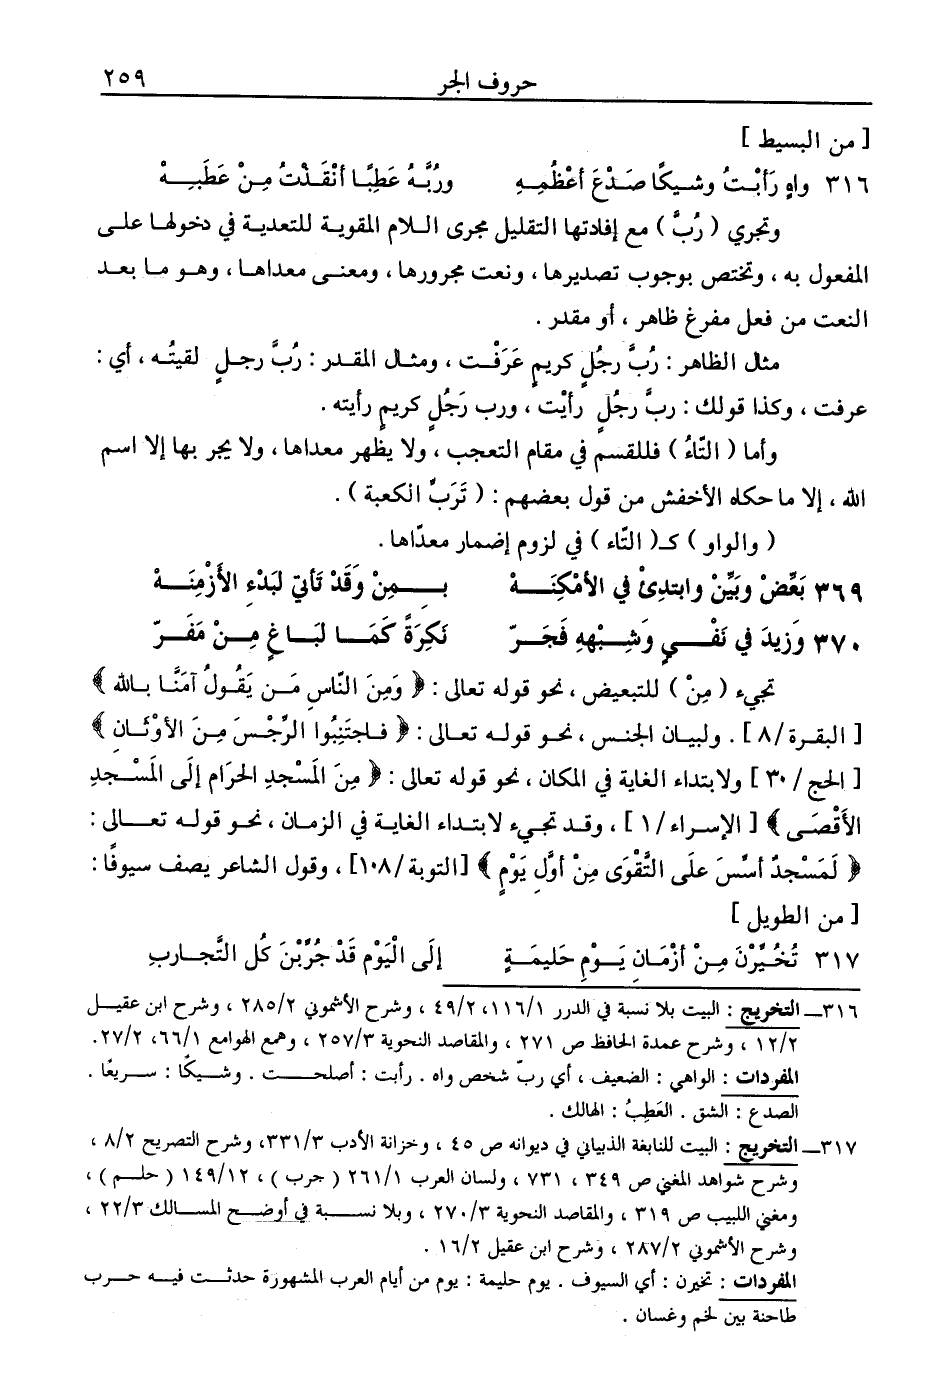 حروف الجر ٢٥٩
[ من البسيط ]
٣١٦ واهٍ رَأَبْتُ وشيكًا صَدْعَ أعْظُمِهِ ورُبَّهُ عَطِبًا أنْقَذْتُ مِنْ عَطَبِهْ
وتجري ( رُبَّ ) مع إفادتها التقليل مجرى اللام المقوية للتعدية في دخولها على
المفعول به ، وتختص بوجوب تصديرها ، ونعت مجرورها ، ومعنى معداها ، وهو ما بعد
النعت من فعل مفرغ ظاهر ، أو مقدر .
مثال الظاهر : رُبَّ رجُلٍ كريمٍ عَرَفْت ، ومثال المقدر : رُبَّ رجلٍ لقيتُه ، أي :
عرفت ، وكذا قولك : ربَّ رجُلٍ رأيْت ، ورب رَجُلٍ كريمٍ رأيته .
وأما ( التّاءُ ) فللقسم في مقام التعجب ، ولا يظهر معداها ، ولا يجر بها إلا اسم
الله ، إلا ما حكاه الأخفش من قول بعضهم : ( تَرَبِّ الكعبة ) .
( والواو ) كـ( التّاء ) في لزوم إضمار معدّاها .
٣٦٩ بَعِّضْ وبَيِّنْ وابتدِئ في الأمْكِنَهْ بِمِنْ وَقَدْ تَأتي لبَدْءِ الأزْمِنَهْ
٣٧٠ وَزِيدَ في نَفْيٍ وَشِبْهِهِ فَجَرّ نَكِرَةً كَمَا لبَاغٍ مِنْ مَفَرّ
تجيء ( مِنْ ) للتبعيض ، نحو قوله تعالى : ﴿ وَمِنَ النَّاسِ مَن يَقُولُ آمَنَّا بالله ﴾
[ البقرة/٨ ] . ولبيان الجنس ، نحو قوله تعالى : ﴿ فَاجتَنِبُوا الرِّجْسَ مِنَ الأوْثَانِ ﴾
[ الحج/٣٠ ] ولابتداء الغاية في المكان ، نحو قوله تعالى : ﴿ مِنَ المَسْجِدِ الحَرَامِ إلَى المَسْجِدِ
الأقْصَى ﴾ [ الإسراء/١ ] ، وقد تجيء لابتداء الغاية في الزمان ، نحو قوله تعالى :
﴿ لَمَسْجِدٌ أُسِّسَ عَلَى التَّقْوَى مِنْ أوَّلِ يَوْمٍ ﴾ [التوبة/١٠٨] ، وقول الشاعر يصف سيوفًا :
[ من الطويل ]
٣١٧ تُخُيِّرْنَ مِنْ أزْمَانِ يَوْمِ حَليمَةٍ إلَى الْيَوْمِ قَدْ جُرِّبْنَ كُل التَّجارب
٣١٦ــ التخريج : البيت بلا نسبة في الدرر ١١٦/١، ٤٩/٢ ، وشرح الأشموني ٢٨٥/٢ ، وشرح ابن عقيل
١٢/٢ ، وشرح عمدة الحافظ ص ٢٧١ ، والمقاصد النحوية ٢٥٧/٣ ، وهمع الهوامع ٦٦/١، ٢٧/٢.
المفردات : الواهي : الضعيف ، أي ربّ شخص واه . رأبت : أصلحت . وشيكًا : سريعًا .
الصدع : الشق . العَطِبُ : الهالك .
٣١٧ــ التخريج : البيت للنابغة الذبياني في ديوانه ص ٤٥ ، وخزانة الأدب ٣٣١/٣، وشرح التصريح ٨/٢ ،
وشرح شواهد المغني ص ٣٤٩ ، ٧٣١ ، ولسان العرب ٢٦١/١ ( جرب ) ، ١٤٩/١٢ ( حلم ) ،
ومغني اللبيب ص ٣١٩ ، والمقاصد النحوية ٢٧٠/٣ ، وبلا نسبة في أوضح المسالك ٢٢/٣ ،
وشرح الأشموني ٢٨٧/٢ ، وشرح ابن عقيل ١٦/٢ .
المفردات : تخيرن : أي السيوف . يوم حليمة : يوم من أيام العرب المشهورة حدثت فيه حرب
طاحنة بين لخم وغسان .